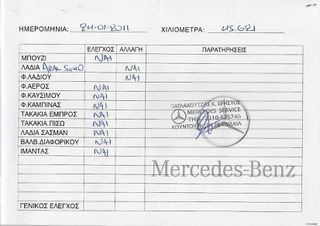 ΗΜΕΡΟΜΗΝΙΑ: 24-01-2011 ΧΙΛΙΟΜΕΤΡΑ: 45.621
ΕΛΕΓΧΟΣ ΑΛΛΑΓΗ ΠΑΡΑΤΗΡΗΣΕΙΣ
ΜΠΟΥΖΙ ΝΑΙ
ΛΑΔΙΑ ΝΑΙ
Φ.ΛΑΔΙΟΥ ΝΑΙ
Φ.ΑΕΡΟΣ ΝΑΙ
Φ.ΚΑΥΣΙΜΟΥ ΝΑΙ
Φ.ΚΑΜΠΙΝΑΣ ΝΑΙ
ΤΑΚΑΚΙΑ ΕΜΠΡΟΣ ΝΑΙ
ΤΑΚΑΚΙΑ ΠΙΣΩ ΝΑΙ
ΛΑΔΙΑ ΣΑΣΜΑΝ ΝΑΙ
ΒΑΛΒ.ΔΙΑΦΟΡΙΚΟΥ ΝΑΙ
ΙΜΑΝΤΑΣ ΝΑΙ
ΧΡΗΣΤΟΣ
MERCEDES SERVICE
Mercedes-Benz
ΓΕΝΙΚΟΣ ΕΛΕΓΧΟΣ